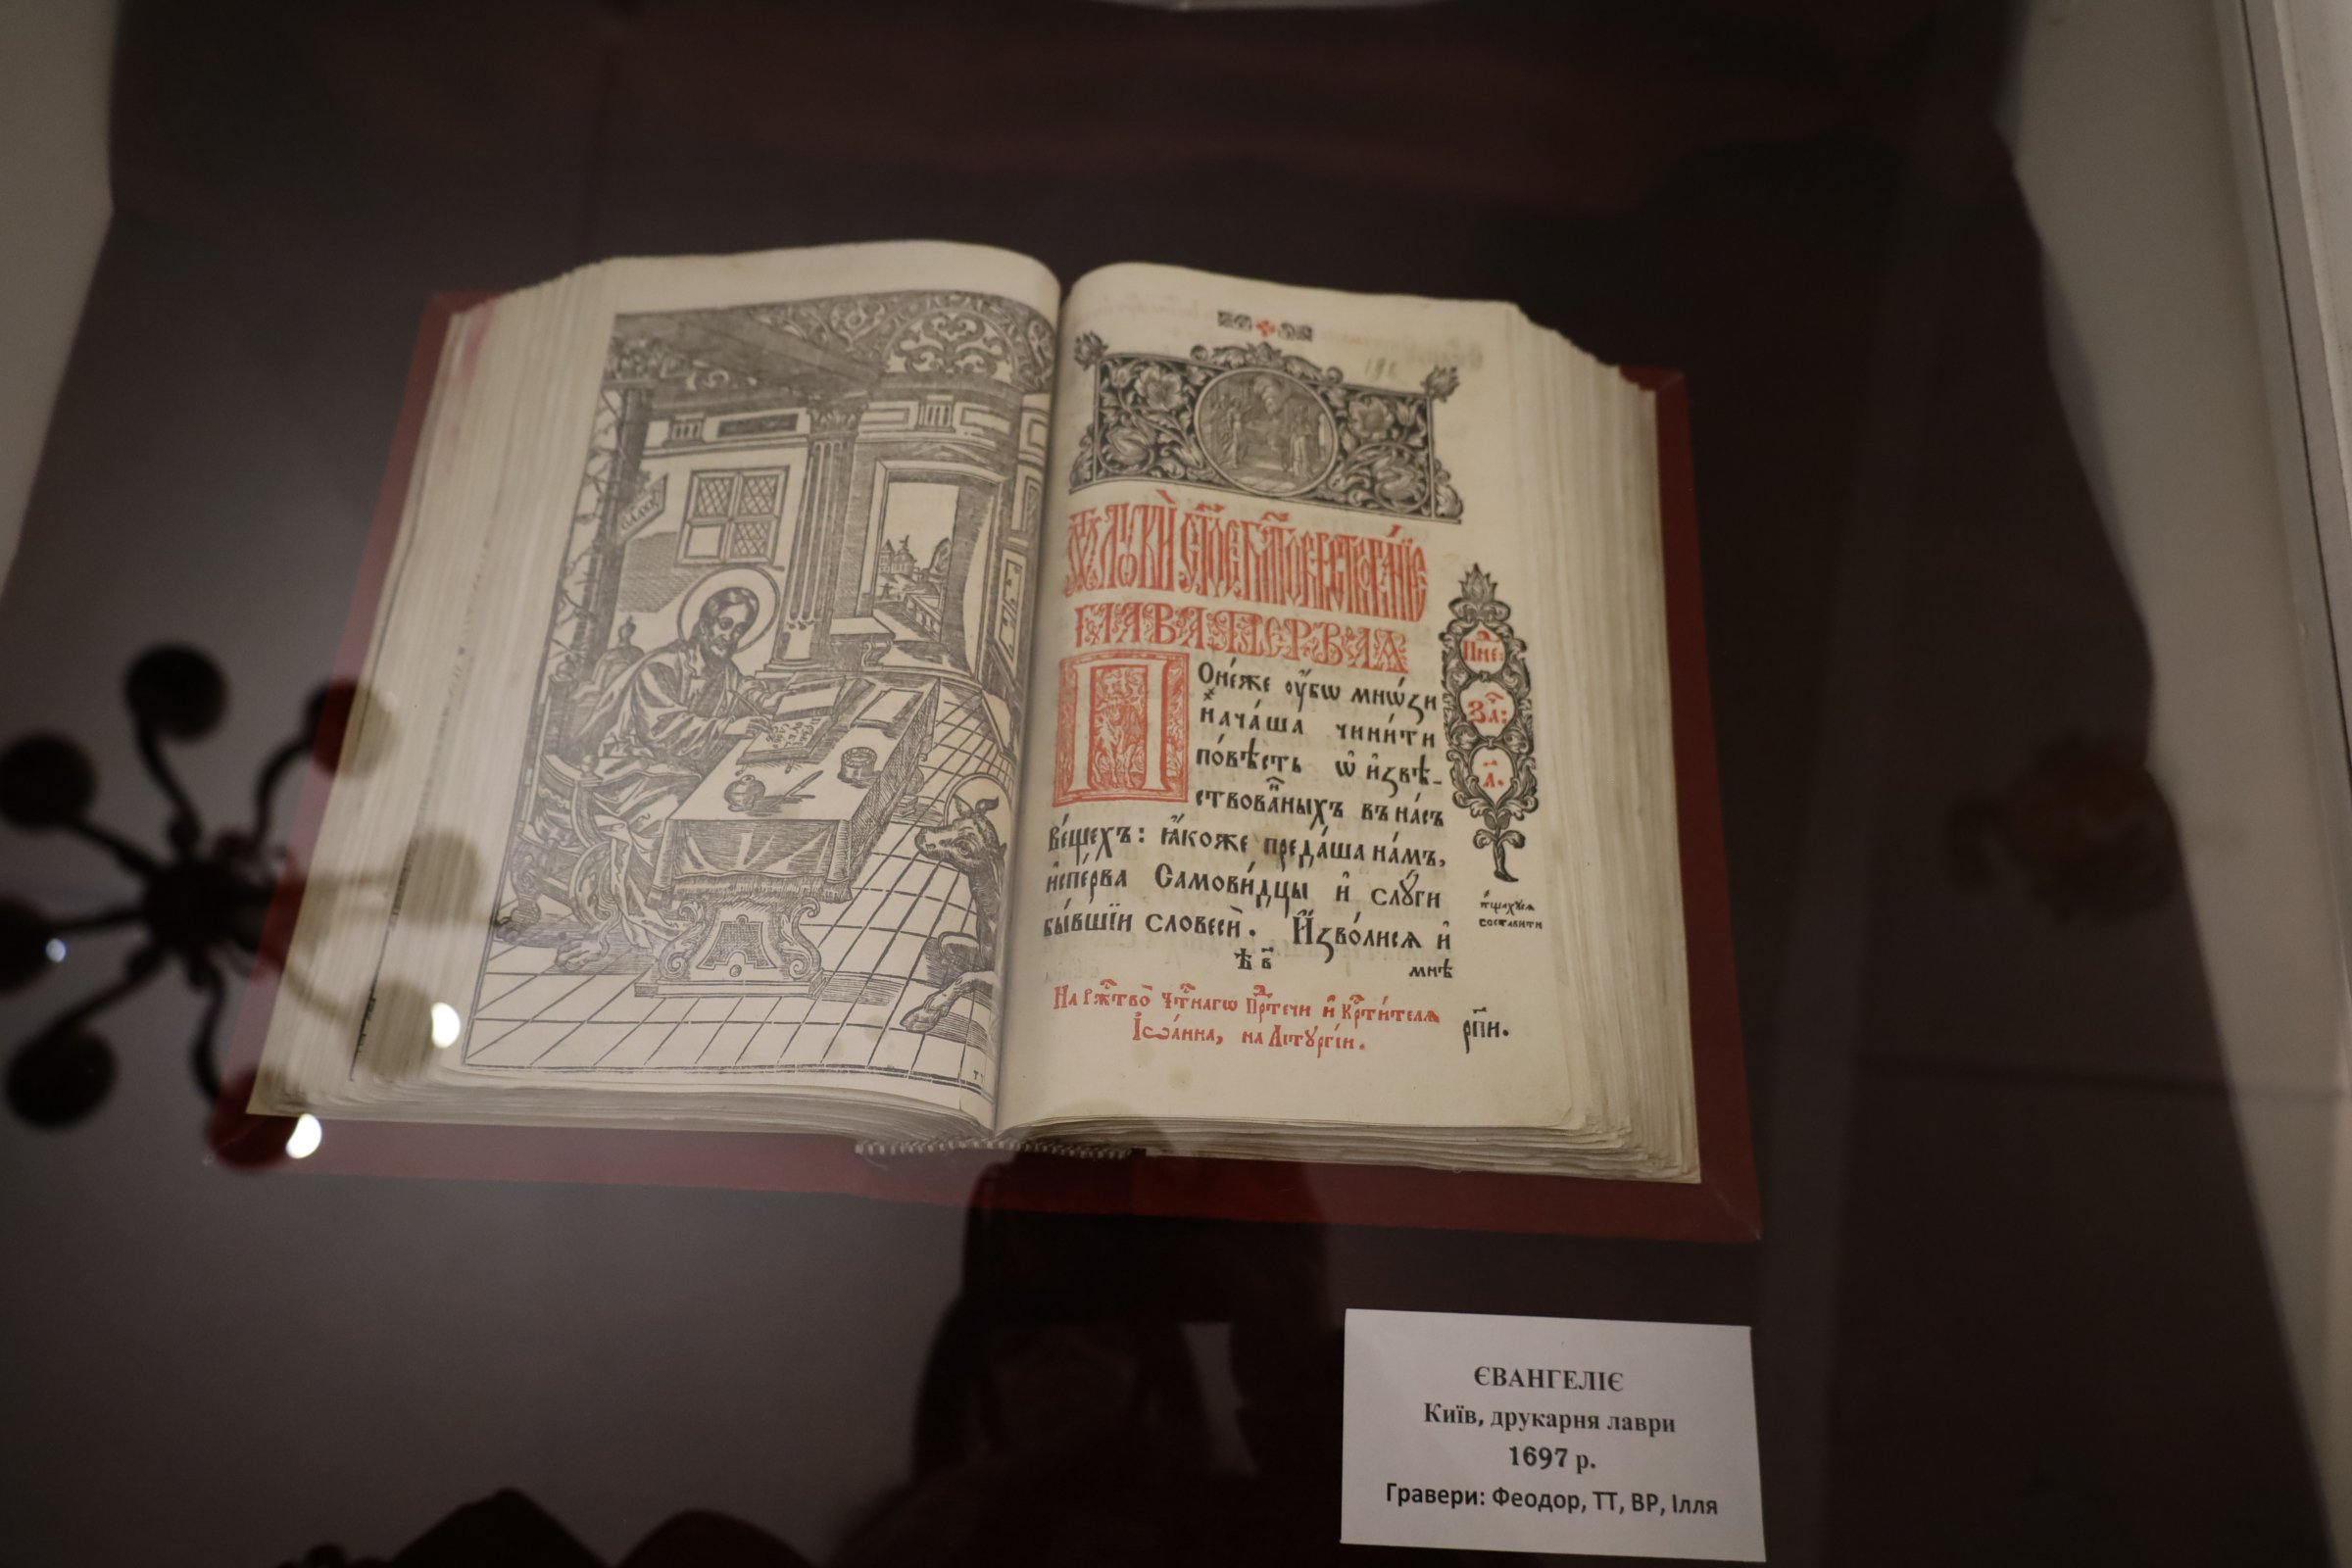 Ѿ Лꙋки́ ст҃о́е бл҃говѣствова́нїе
ГЛАВА ПЕРВАѦ
Поне́же ᲂу҆́бѡ мнѡ́ꙁи
нача́ша чини́ти
по́вѣсть ѡ҆ и҆ꙁвѣ-
ствова́ныхъ въ на́съ
ве́щехъ: ꙗ҆́коже преда́ша на́мъ,
и҆спе́рва Самови́дцы и҆ слꙋги
бы́вшїи словесѝ. И҆ꙁво́лисѧ и҆
мнѣ
На Рж҃тво̀ Чⷭ҇тнагѡ Прⷣте́чи и҆ Крⷭ҇ти́телѧ
Іѡа́нна, на Лїтꙋргі́и.
рп҃и.
Пнⷣе:
За҃:
а҃.
ЄВАНГЕЛІЄ
Київ, друкарня лаври
1697 р.
Гравери: Феодор, ТТ, ВР, Ілля